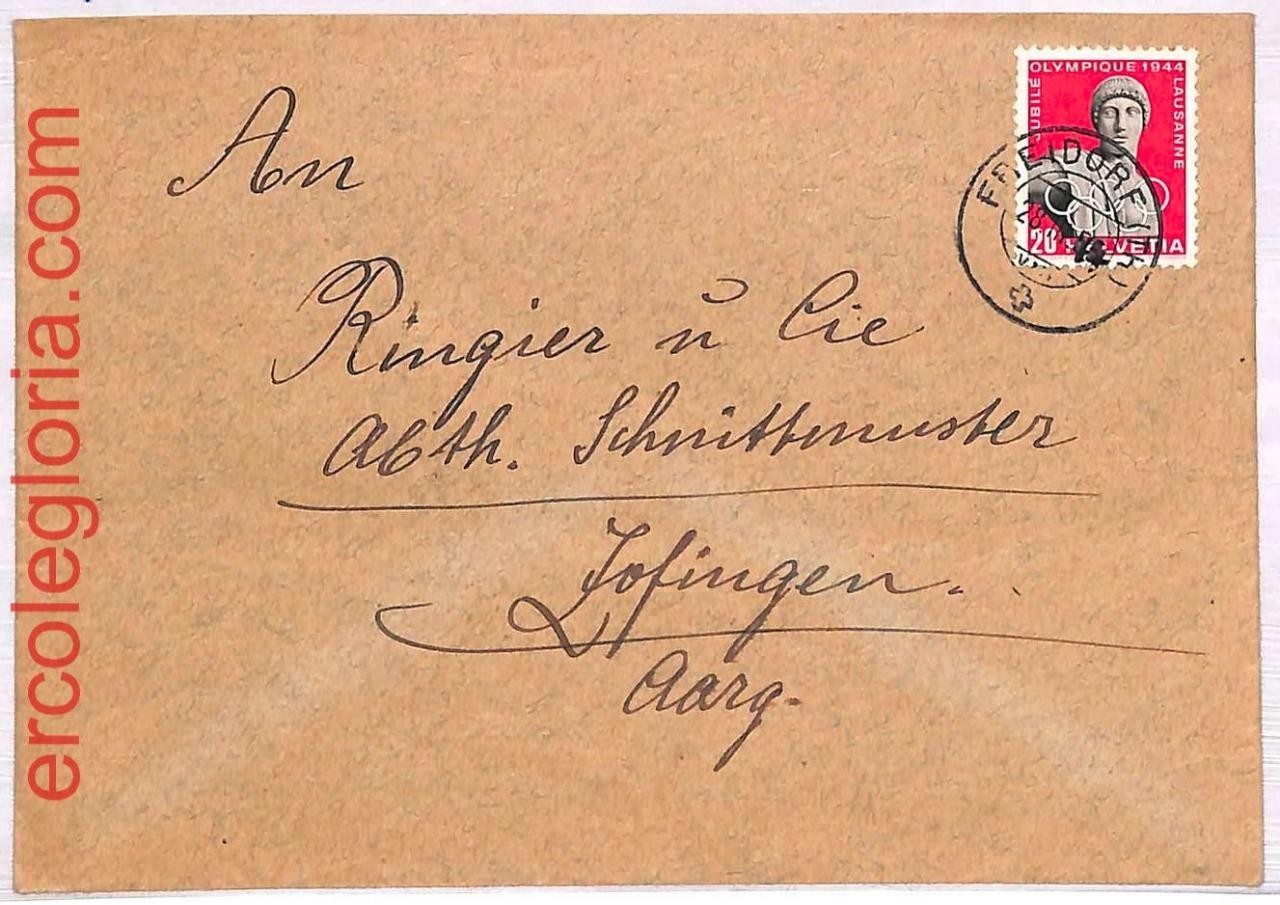 ercolegloria.com
OLYMPIQUE 1944
JUBILÉ
LAUSANNE
20 HELVETIA
FREIDORF
An
Ringier u Cie
Abth. Schnittmuster
Zofingen.
Aarg.